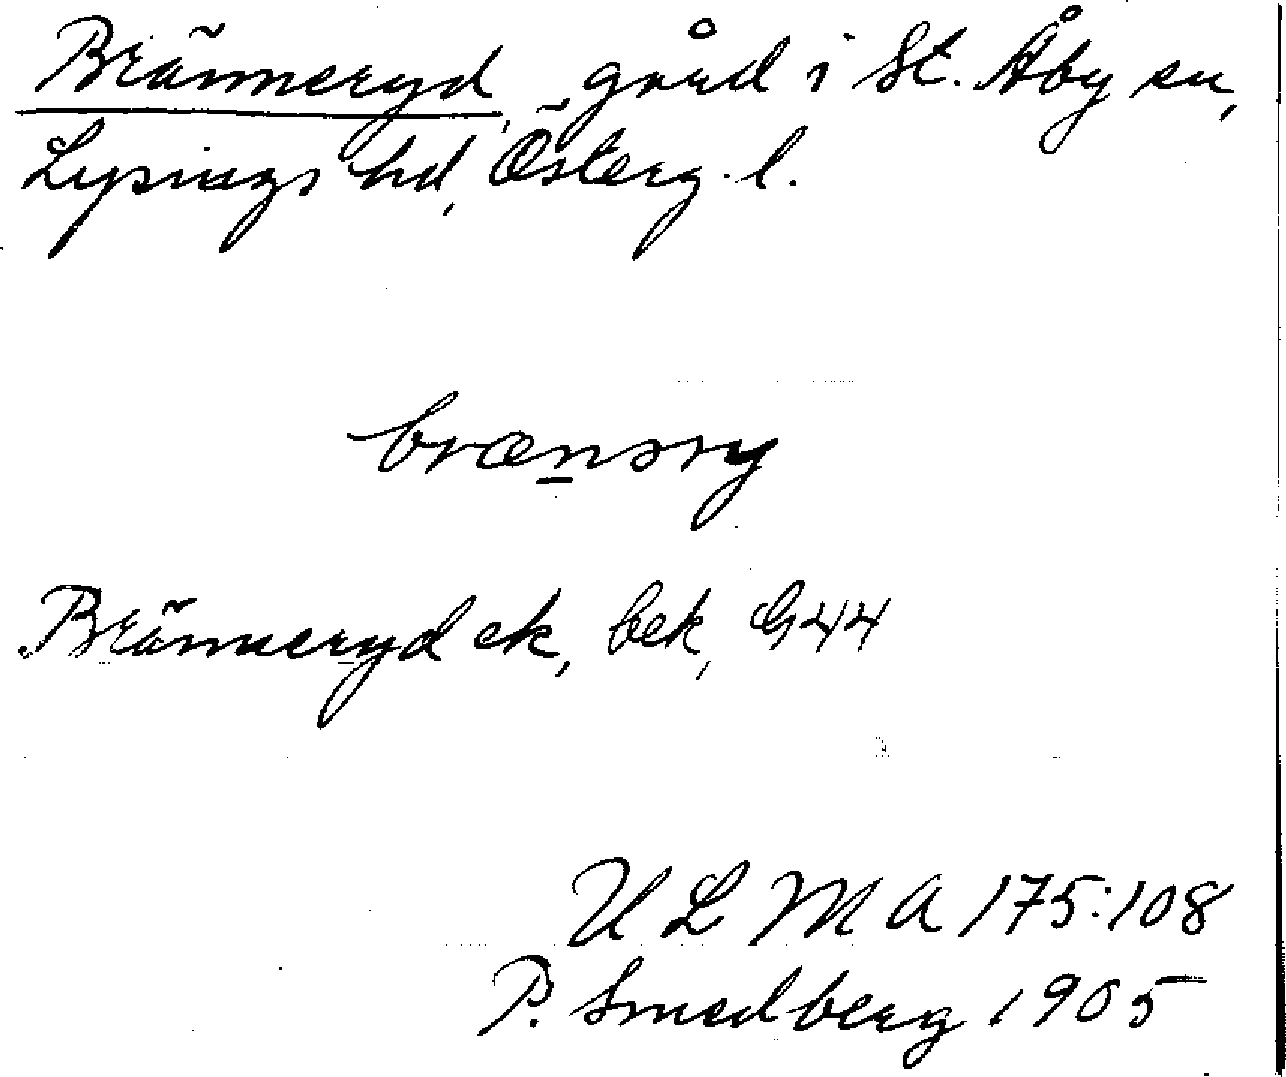 Bränneryd, gård i St. Åby sn,
Lysings hd, Österg. l.
brænəry
Bränneryd ek, bek, G44
ULMA 175:108
P. Smedberg 1905